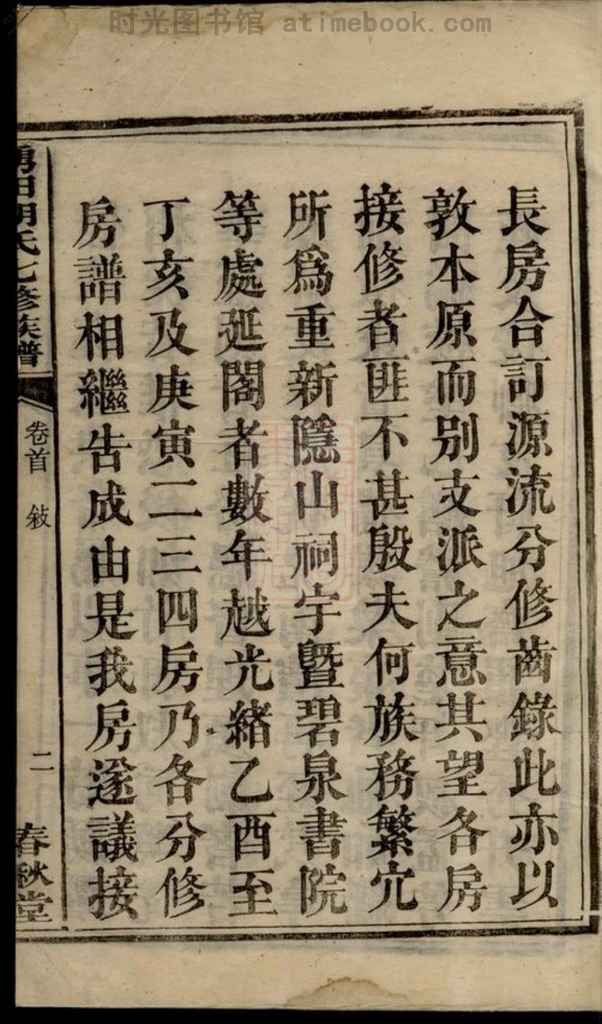 时光图书馆 atimebook.com
長房合訂源流分修齒錄此亦以
敦本原而別支派之意其望各房
接修者匪不甚殷夫何族務繁冗
所為重新隱山祠宇暨碧泉書院
等處延閣者數年越光緒乙酉至
丁亥及庚寅二三四房乃各分修
房譜相繼告成由是我房遂議接
田胡氏七修族譜
卷首 敍
二
春秋堂